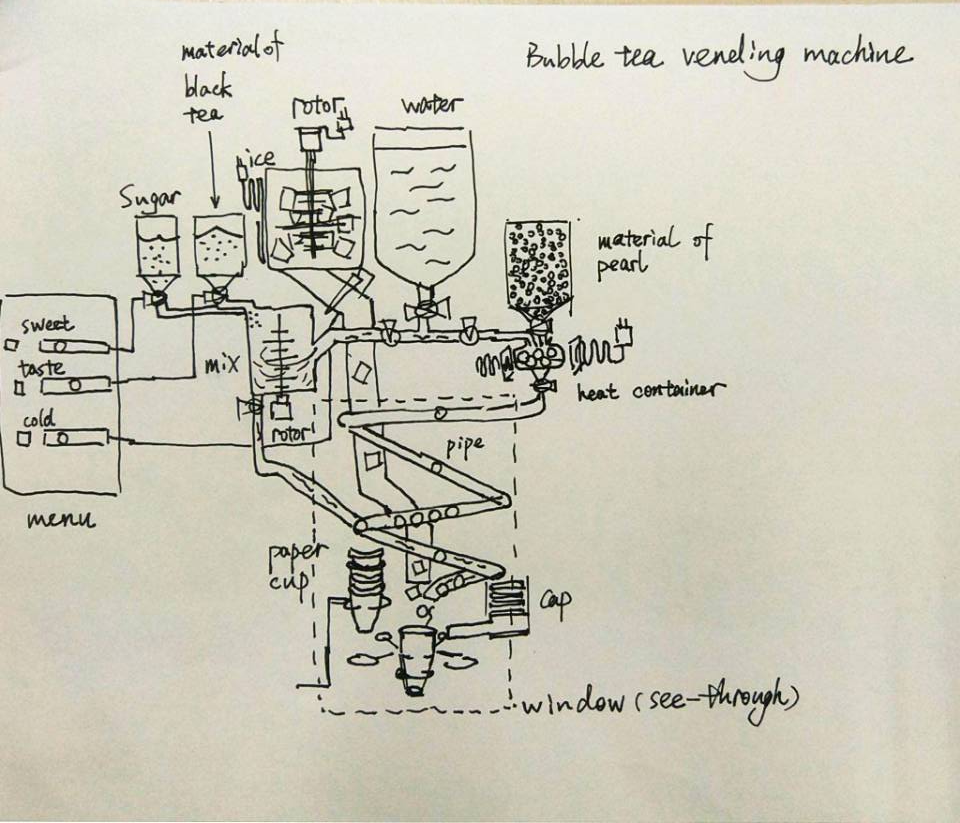 Bubble tea vending machine
material of
black
tea
rotor
water
ice
Sugar
material of
pearl
sweet
taste
mix
cold
heat container
rotor
pipe
menu
paper
cup
cap
window (see-through)